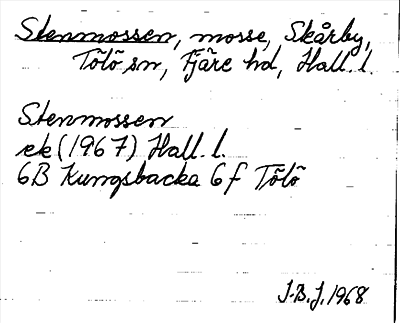 Stenmossen, mosse, Skårby,
Tölö sn, Fjäre hd, Hall. l.
Stenmossen
ek (1967) Hall. l.
6B Kungsbacka 6f Tölö
J.B.J. 1968